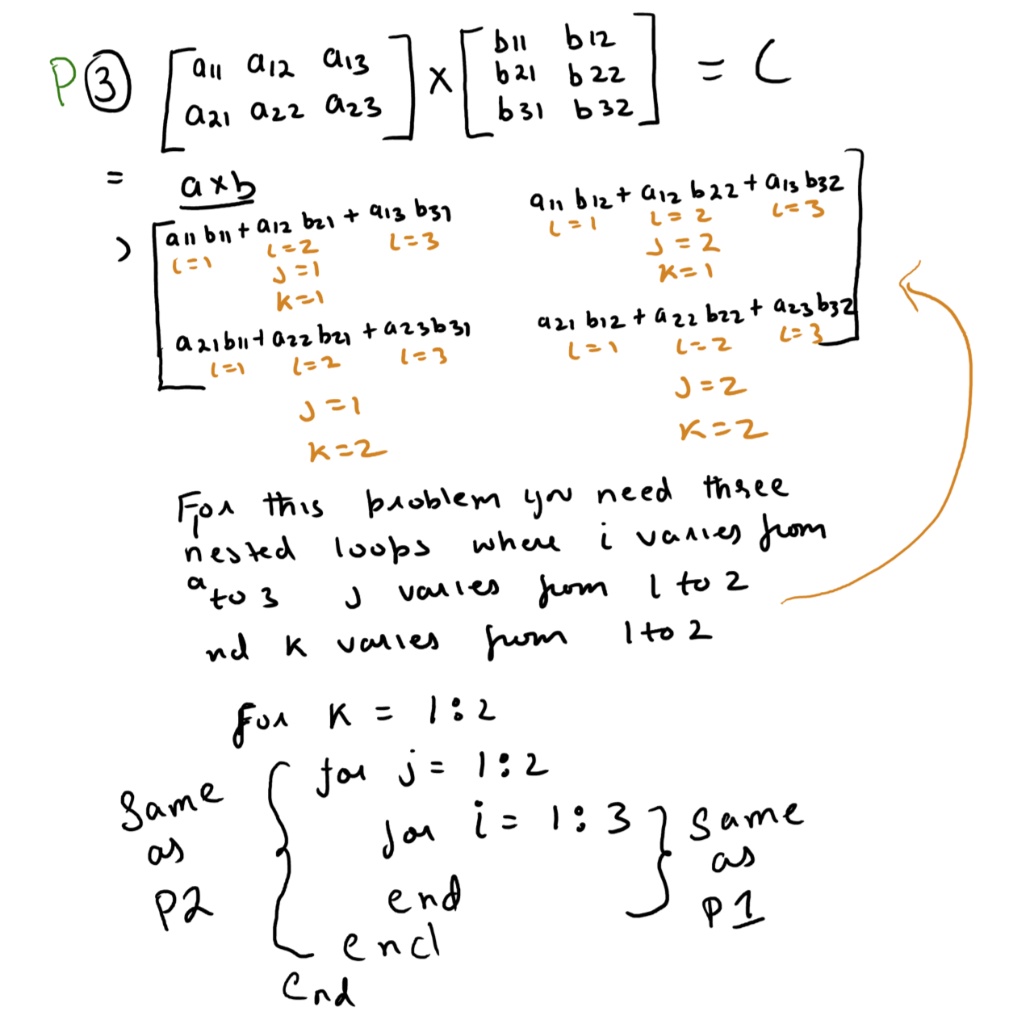 P③ [a11 a12 a13 ] x [b11 b12 ] = C
a21 a22 a23 b21 b22
b31 b32
= axb
a11 b11 + a12 b21 + a13 b31 a11 b12 + a12 b22 + a13 b32
i=1 i=2 i=3 i=1 i=2 i=3
j=1 j=2
k=1 k=1
a21 b11 + a22 b21 + a23 b31 a21 b12 + a22 b22 + a23 b32
i=1 i=2 i=3 i=1 i=2 i=3
j=1 j=2
k=2 k=2
For this problem you need three
nested loops where i varies from
a to 3 j varies from 1 to 2
nd k varies from 1 to 2
for K = 1:2
for j = 1:2
for i = 1:3
end
end
end
Same
as
P2
Same
as
P1